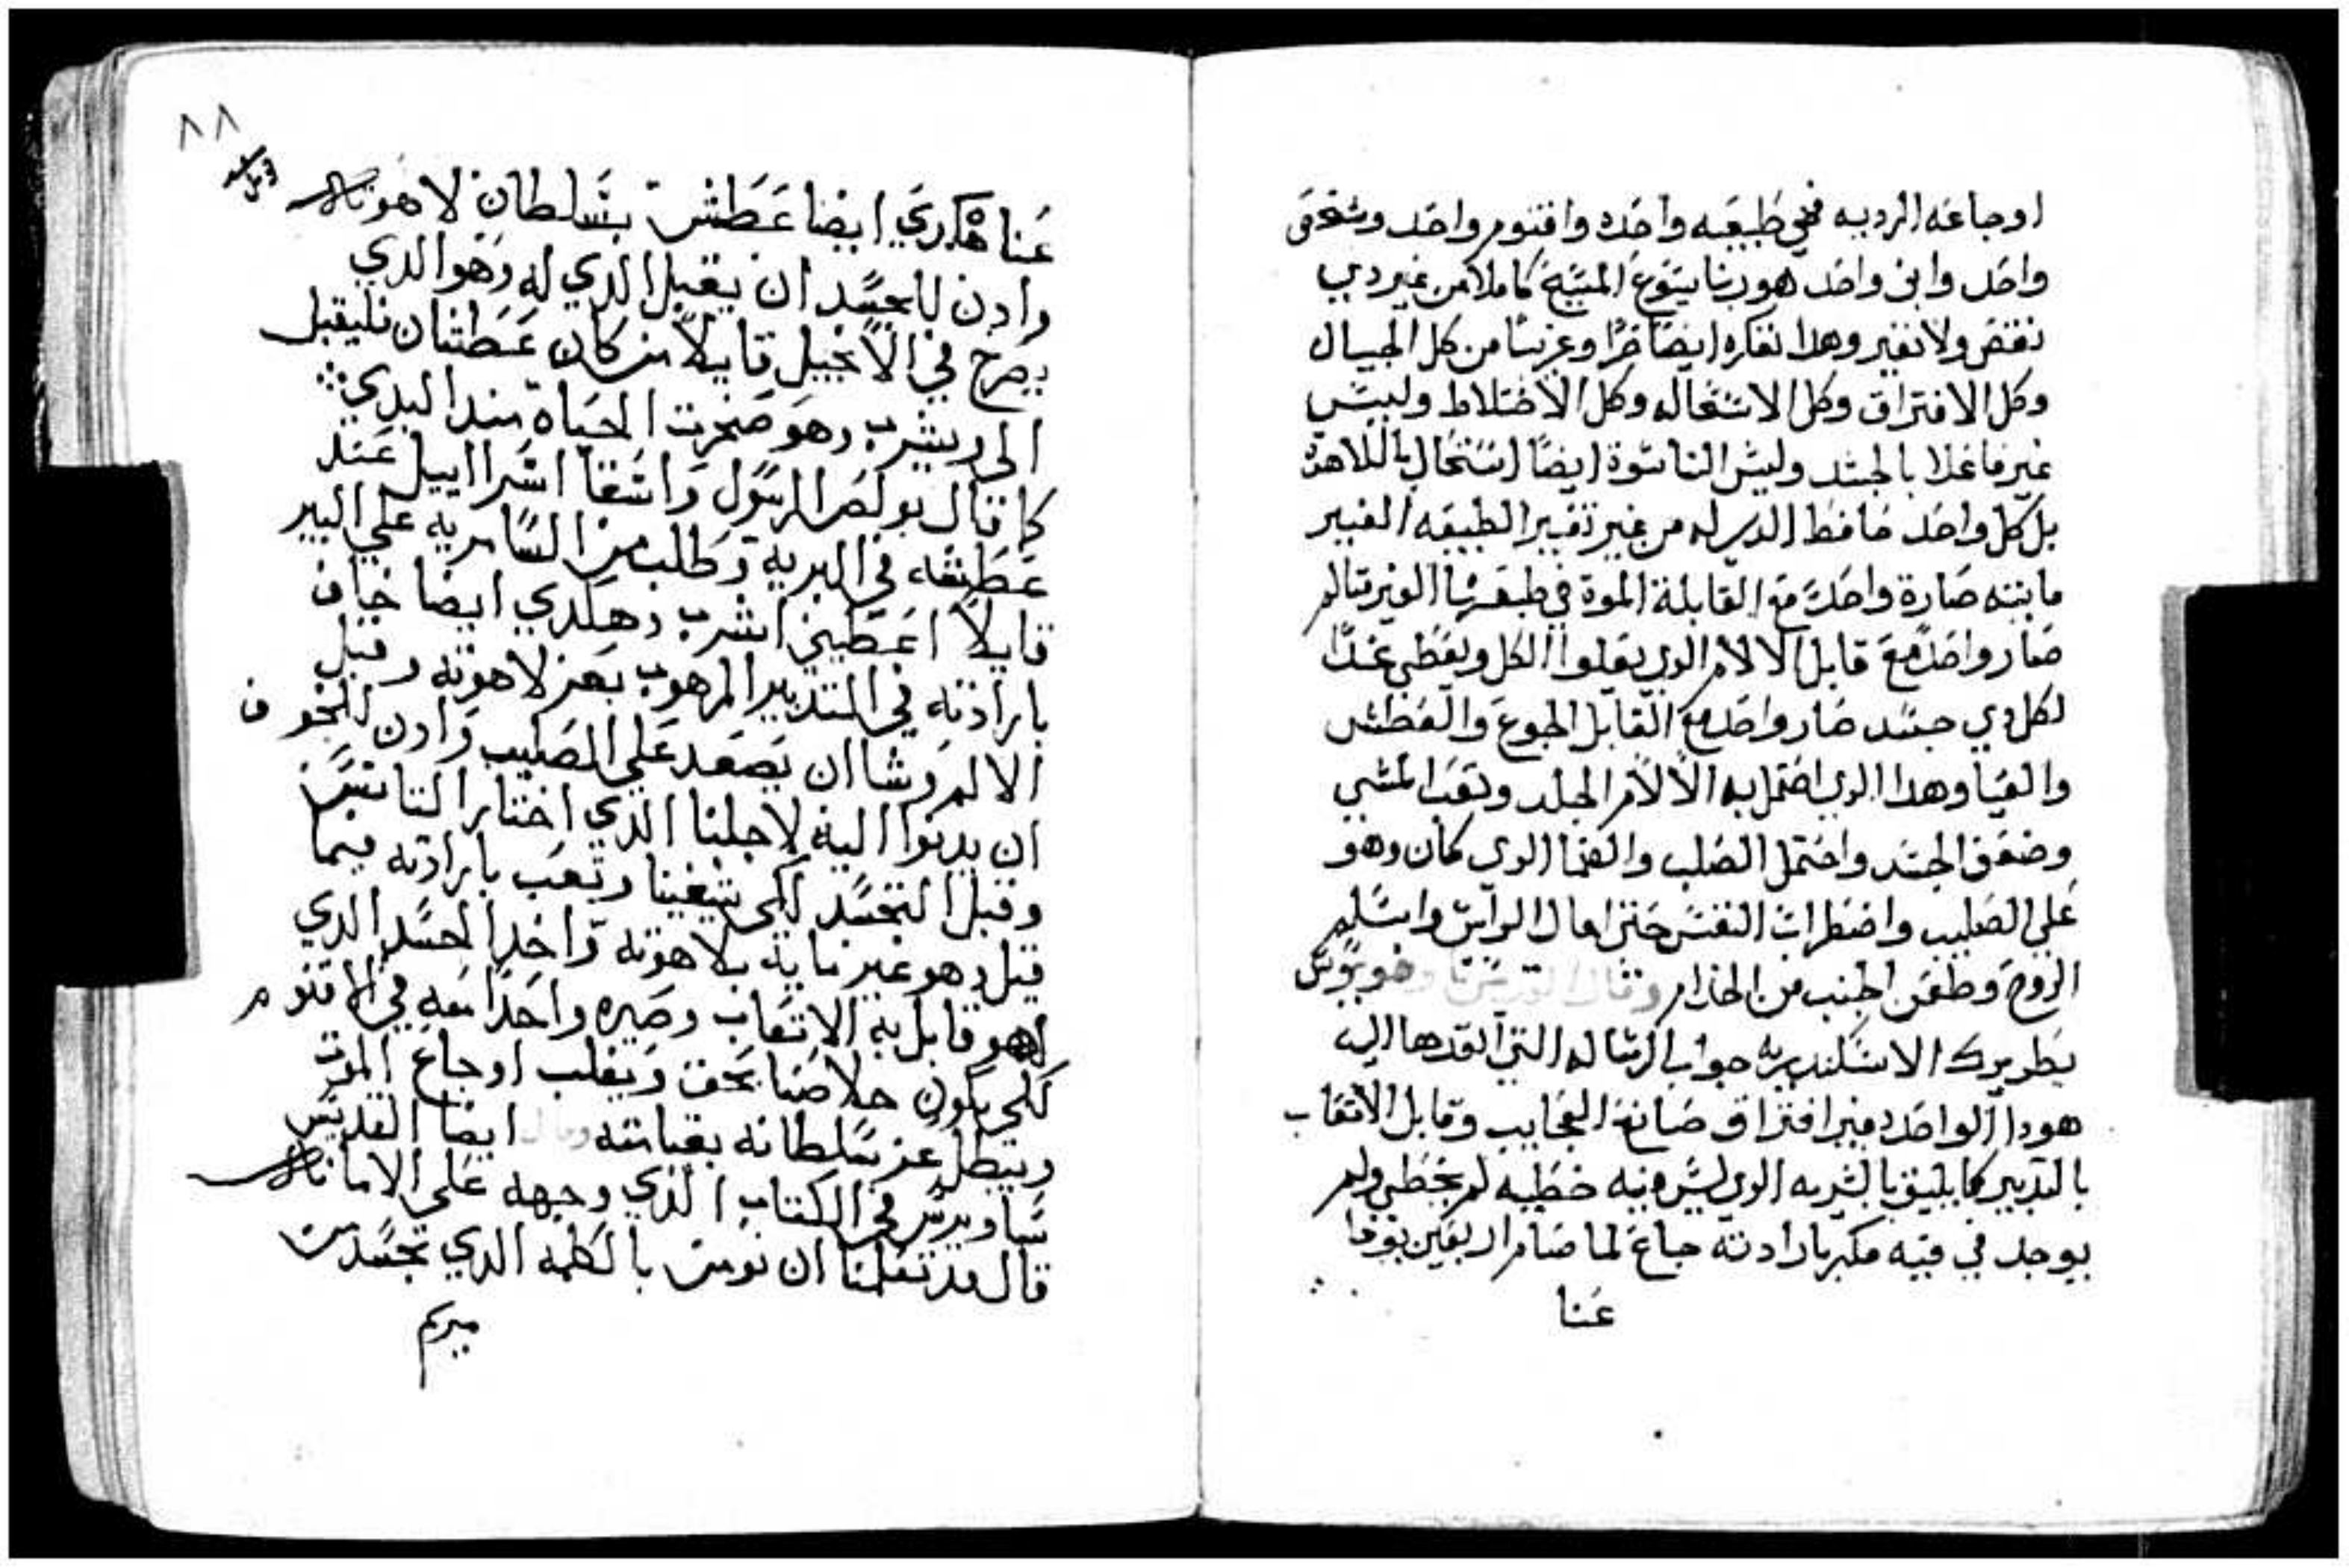 اوجاعه الرديه فهي طبيعه واحده واقنوم واحد وشخص
واحد وابن واحد هو ربنا يسوع المسيح كاملا من غير دي
نقص ولا تغير وهدا نفكره ايضا حرا وغريبا من كل الخيال
وكل الافتراق وكل الاستحاله وكل الاختلاط وليس
غير فاعلا بالجسد وليس الناسوة ايضا استحال باللاهوة
بل كل واحد حافظ الدي له من غير تغيير الطبيعه الغير
مايته صارة واحدة مع القابلة الموة في طبعها الغير متالم
صار واحد مع قابل الالام الدي يعلوا الكل ويعطي غدا
لكل دي جسد صار واحد مع القابل الجوع والعطش
والعيا وهدا الدي احتمل به الالام الجلد وتعب المشي
وضعف الجسد واحتمل الصلب والعما الدي كان وهو
علي الصليب واضطراب النفس حتي امال الراس واسلم
الروح وطعن الجنب من الخدام وقال القديس
بطريرك الاسكندريه جواب الرساله التي انفدها اليه
هودا الواحد بغير افتراق صانع العجايب وقابل الاتعاب
بالتدبير كما يليق بالبشريه الدي ليس فيه خطيه لم يخطي ولم
يوجد في فيه مكر بارادته جاع لما صام اربعين يوما
عنا
٨٨
عنا هكدي ايضا عطش بسلطان لاهوته
وادن للجسد ان يقبل الدي له وهو الدي
يصرخ في الانجيل قايلا من كان عطشان فليقبل
الي ويشرب وهو صخرت الحياة مند البدي
كما قال بولص الرسول واسقا اسراييل عند
عطشه في البرية وطلب من السامريه علي البير
قايلا اعطيني اشرب وهكدي ايضا خاف
بارادته في التدبير المرهوب بعز لاهوته وقبل
الالم وشا ان يصعد علي الصليب وادن للخوف
ان يدنوا اليه لاجلنا الدي اختار التانس
وقبل التجسد لكي يشفينا وتعب بارادته فيما
قبل وهو غير مايت بلاهوته واخد الجسد الدي
لهو قابل به الاتعاب وصيره واحدا معه في الاقنوم
لكي يكون خلاصنا بحق ويغلب اوجاع الموت
ويبطل عز سلطانه بقيامته وقال ايضا القديس
ساويرس في الكتاب الدي وجهه علي الامانه
قال قد تعلمنا ان نومن بالكلمه الدي تجسد من
مريم